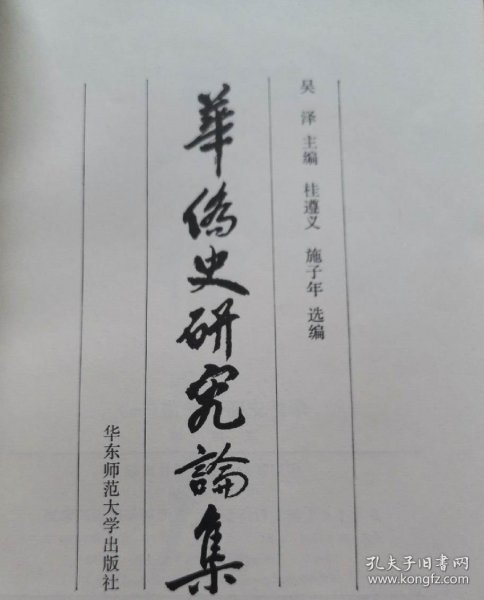 吴泽 主编 桂遵义 施子年 选编
華僑史研究論集
华东师范大学出版社
孔夫子旧书网
www.kongfz.com